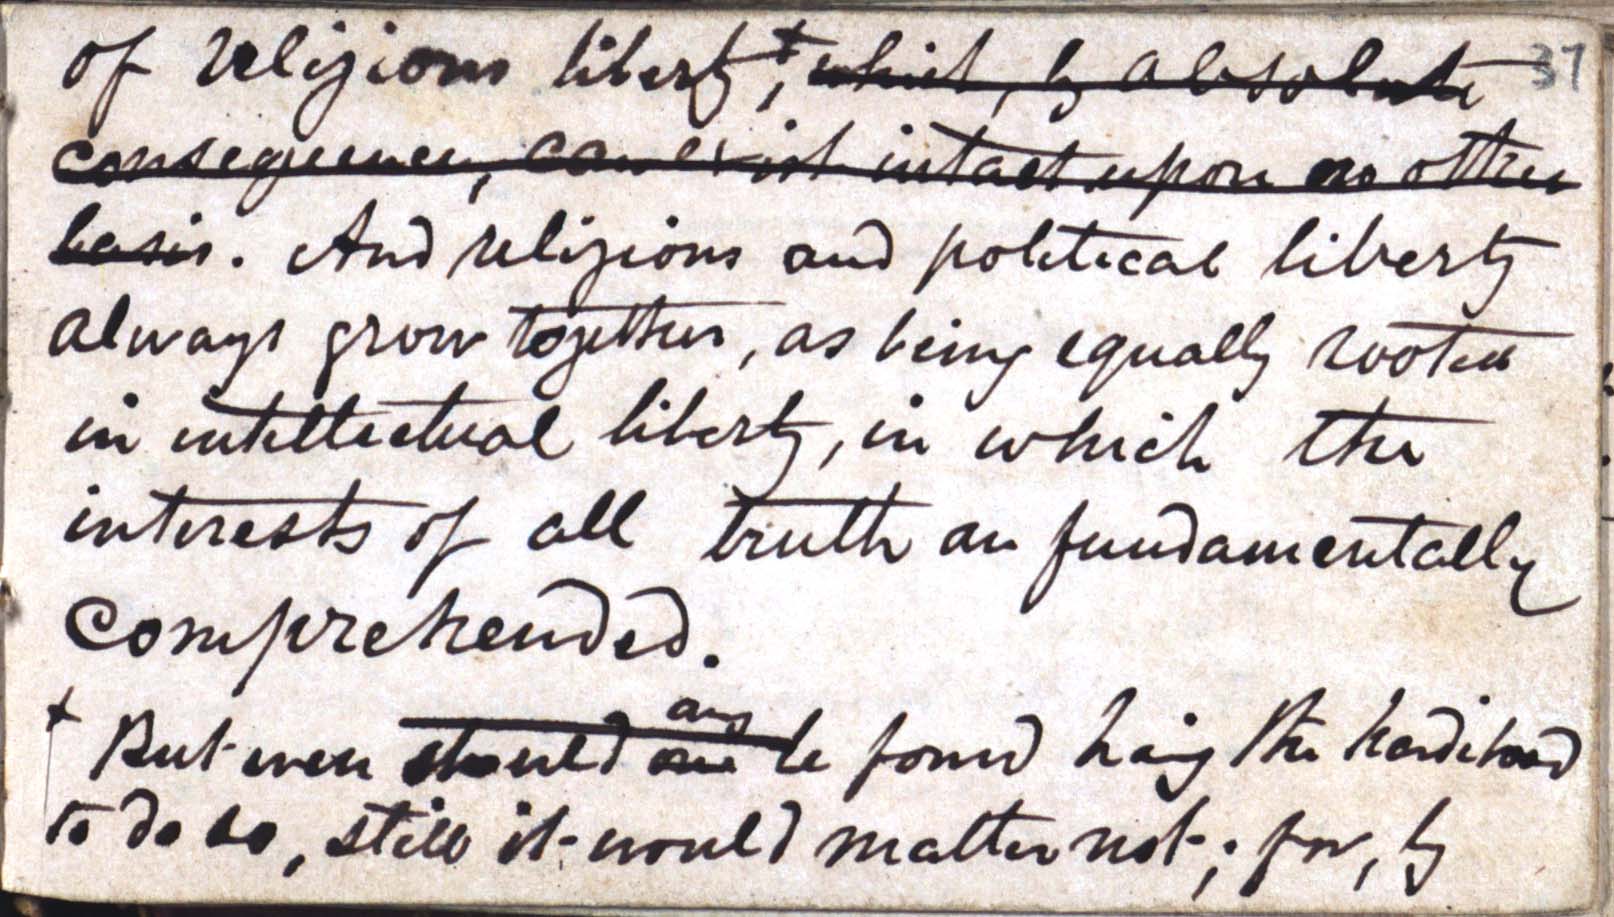 of religious liberty +, which, by absolute 37
consequence, can exist intact upon no other
basis. And religious and political liberty
always grow together, as being equally rooted
in intellectual liberty, in which the
interests of all truth are fundamentally
comprehended.
any
+ But even should one be found having the hardihood
to do so, still it would matter not; for, by